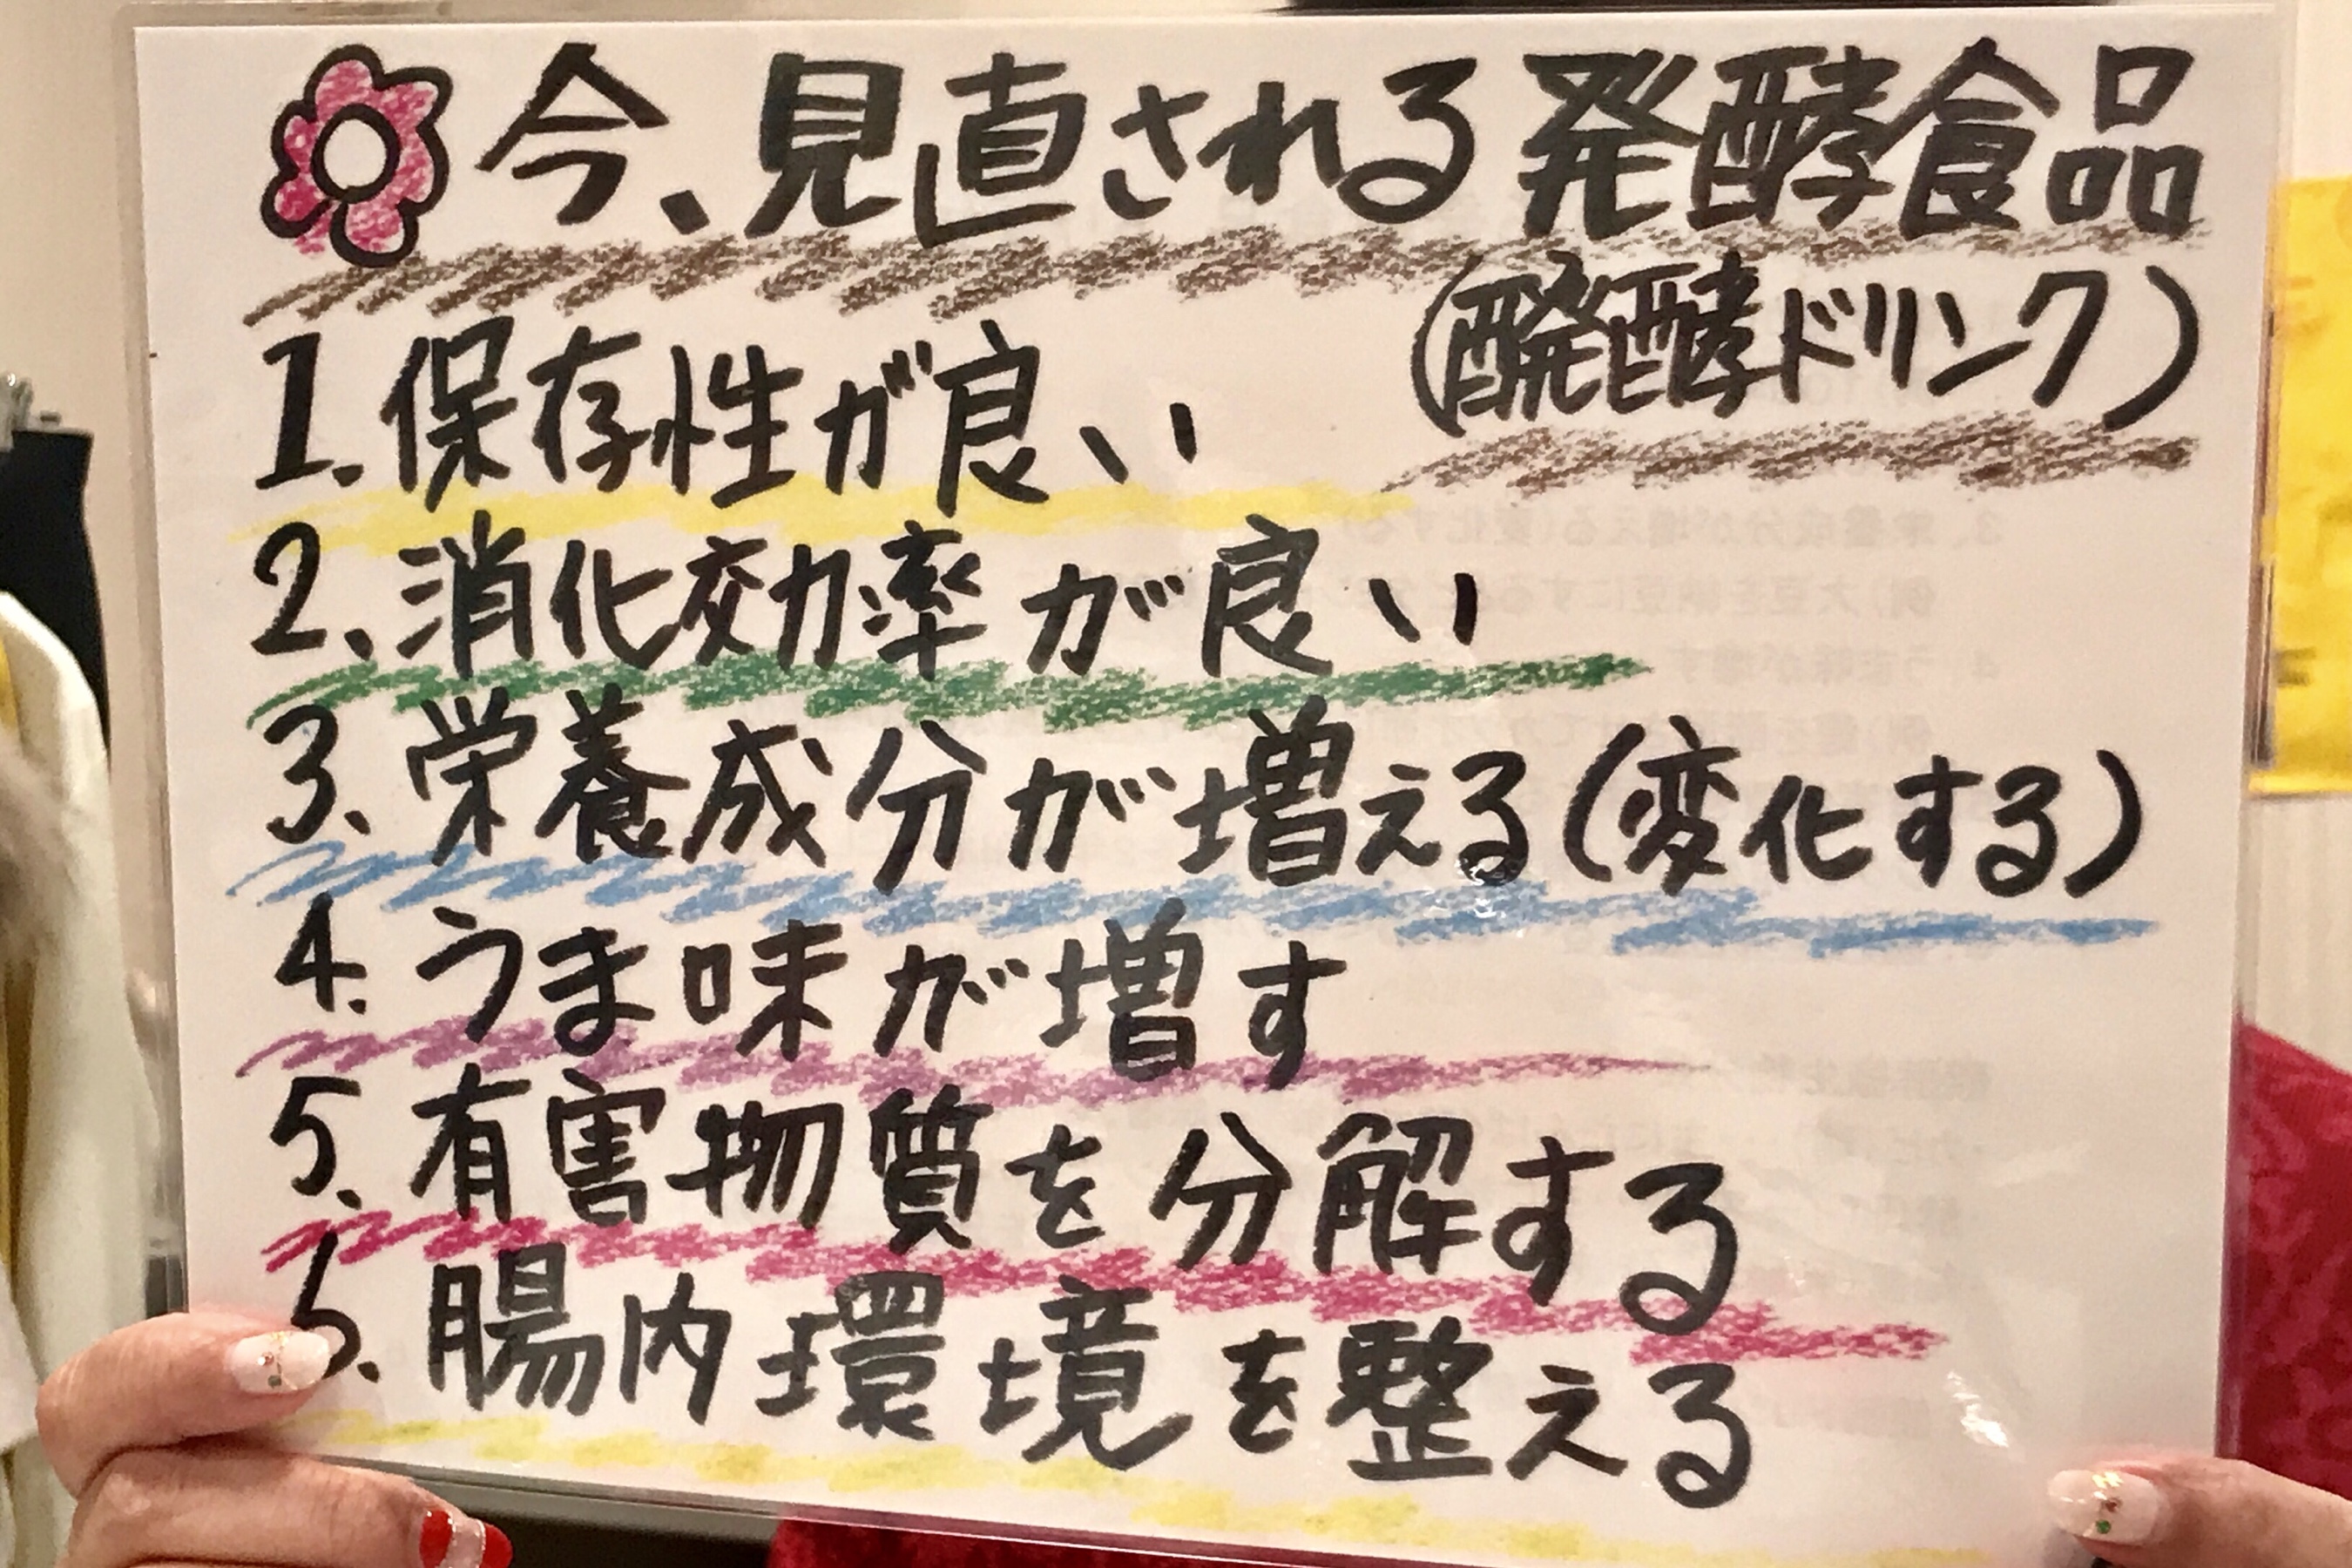 今、見直される発酵食品
(醗酵ドリンク)
1.保存性が良い
2、消化効率が良い
3、栄養成分が増える(変化する)
4.うま味が増す
5、有害物質を分解する
6.腸内環境を整える